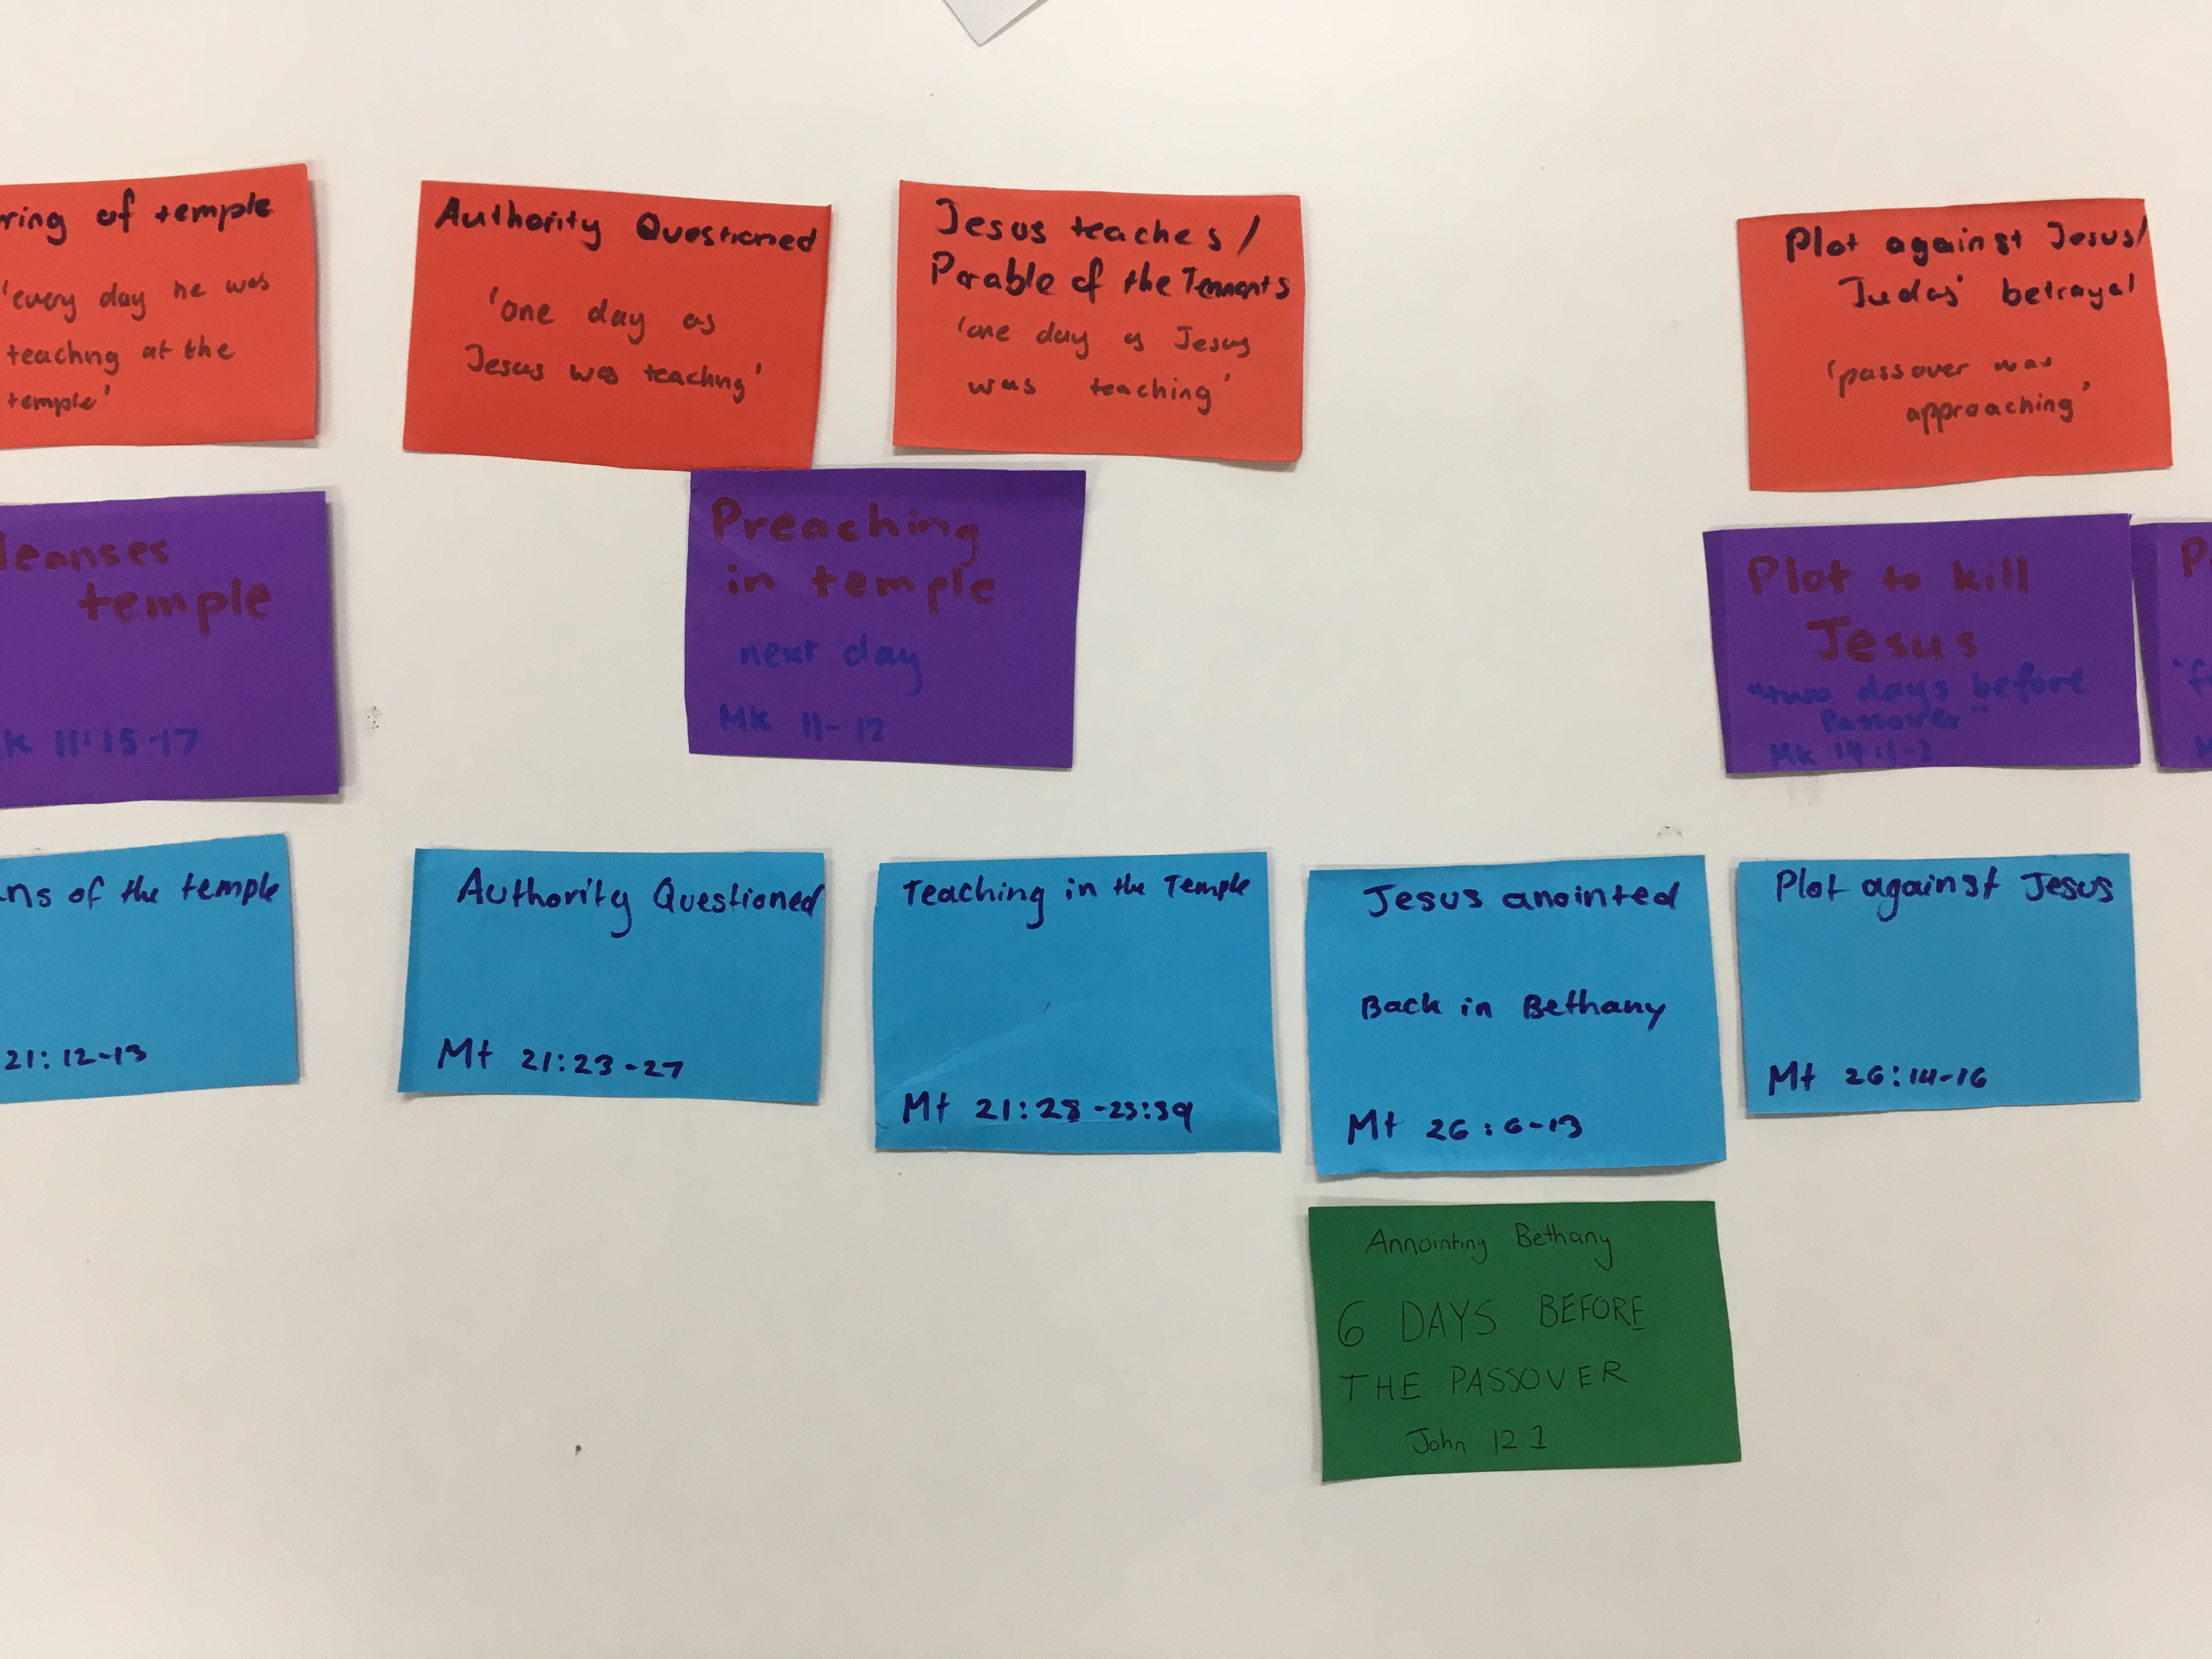 ring of temple
'every day he was
teachng at the
temple'
Authority Questioned
'one day as
Jesus was teachng'
Jesus teaches /
Parable of the Tennants
'one day as Jesus
was teaching'
Plot against Jesus/
Judas' betrayal
'passover was
approaching'
leanses
temple
k 11:15-17
Preaching
in temple
next day
Mk 11-12
Plot to kill
Jesus
"two days before
Passover"
Mk 14:1-2
P
ns of the temple
21:12-13
Authority Questioned
Mt 21:23-27
Teaching in the Temple
Mt 21:28-23:39
Jesus anointed
Back in Bethany
Mt 26:6-13
Plot against Jesus
Mt 26:14-16
Annointing Bethany
6 DAYS BEFORE
THE PASSOVER
John 12:1